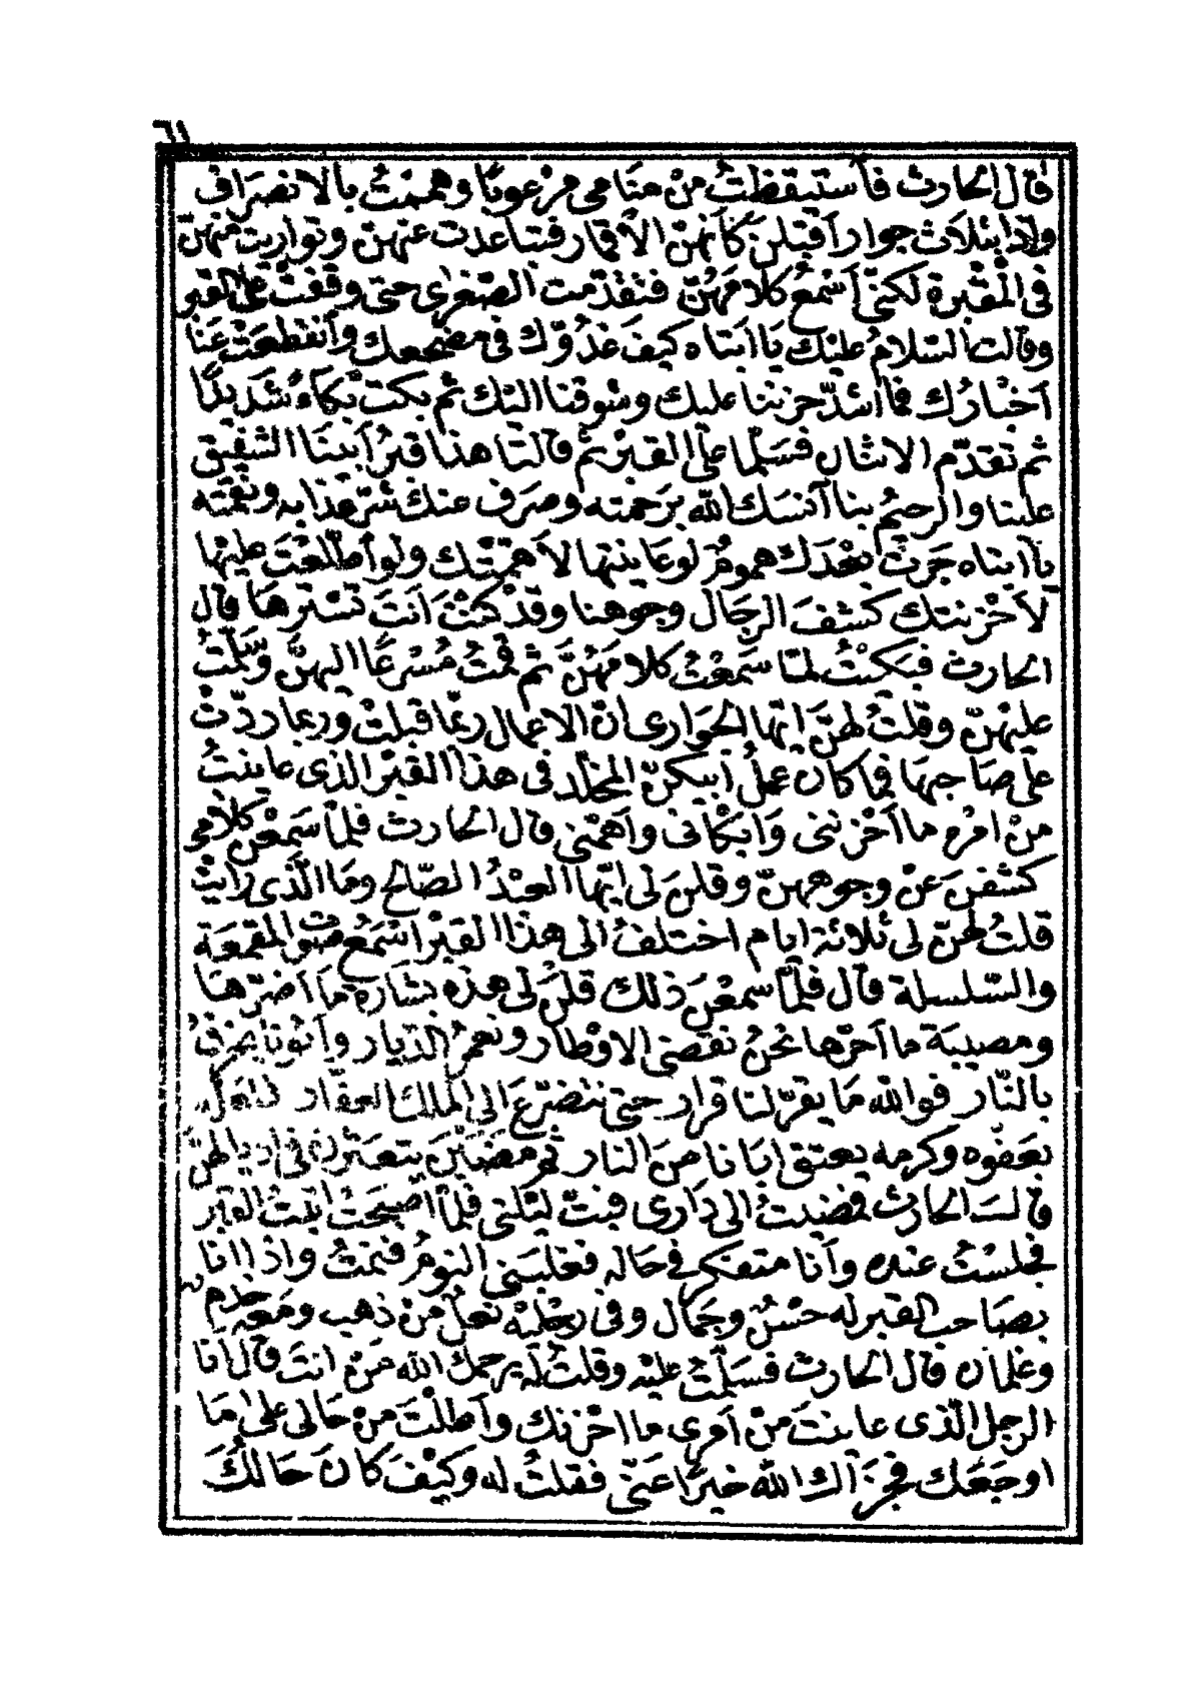 ٦١
قال الحارث فاستيقظتُ منْ منامى مرْعوبًا وهممْتُ بالانصَراف
واذا بثلاث جوار اقبلن كأنهنّ الاقمار فتباعدت عنهنّ وتواريت منهنّ
فى المقْبرة لكنّى اَسْمعُ كلامَهُنّ فتقدّمت الصّغرى حتى وقفَتْ على القبر
وقالت السّلامُ عليْك يَا اَبتاه كيفَ غدُوّك فى مضجعك وانقطعَتْ عَنّا
اَخْبارُك فما اشدّ حزننا عليك وشوقنا اليْك ثم بكتْ بُكاءً شَديدًا
ثم تقدّم الاثنان فسَلّما على القبْر ثُم قالتا هذا قبرُ اَبينَا الشّفيق
علينا والرحيم بنا آنسَك الله برَحمته وصَرف عنك شرّ عذابه ونقمته
يا ابتاه جَرتْ بعْدَك همومٌ لوعاينتها لاَهمّتْك ولو اَطّلعْتَ عليْها
لاَحْزنتك كشفَ الرجَال وجوهنا وقدْ كنْتَ اَنتَ تسْترهَا قال
الحارث فبَكيْتُ لمّا سَمعْتُ كلامَهُنَّ ثم قمتُ مُسْرعًا اليهنَّ وسَلّمتُ
عليْهنّ وقلتُ لهنَّ ايّها الجَوارى ان الاعمال ربّما قبلتْ وربما ردّتْ
على صَاحبهَا فما كان عملُ اَبيكنّ المخلّد فى هذا القبْر الذى عاينتُ
منْ امْره ما اَحْزننى وَابكانى واَهمّنى قال الحارث فلمّا سَمعْن كلامى
كشفنَ عنْ وجوههنّ وقلنَ لى ايّها العبْدُ الصّالح ومَا الّذى رَايتْ
قلتُ لهنّ لى ثلاثة ايام اختلفُ الى هذا القبْر اَسْمَعُ صَوت المقمعَة
والسّلسلة قال فلمّا سمعْنَ ذلك قلنَ لى هذه بشارة ما اَضرّهَا
ومصيبَة ما اَحرّها نحْنُ نقضى الاوْطار ونعمرُ الدّيار وأبونا يحرقُ
بالنّار فوالله مَا يقرّ لنا قرار حتى نتضرّعَ الى الملك الغفّار
بعَفوه وكرمه يعتق ابانا منَ النار ثم مضيْنَ يتعَثّرن فى اذيالهنّ
قالَ الحارث فمضيتُ الى دَارى فبتّ ليْلتى فلمّا اصبَحْتُ اتيْتُ القبر
فجلسْتُ عنده واَنا متفكر فى حَاله فغلبَنى النومُ فنمْتُ واذا انا
بصَاحب القبر له حسْنٌ وجمال وفى رجْليْه نعْلٌ منْ ذهب ومَعه خدم
وغلمان قال الحارث فسَلّمْتُ عليْه وقلتُ له يرحمك الله مَنْ انتَ قال انا
الرجل الّذى عاينتَ منْ اَمرى ما احْزنك واَطلْتَ منْ حَالى على مَا
اوجَعَك فجزَاك الله خيرًا عَنّى فقلتُ له وكيْفَ كان حَالكَ